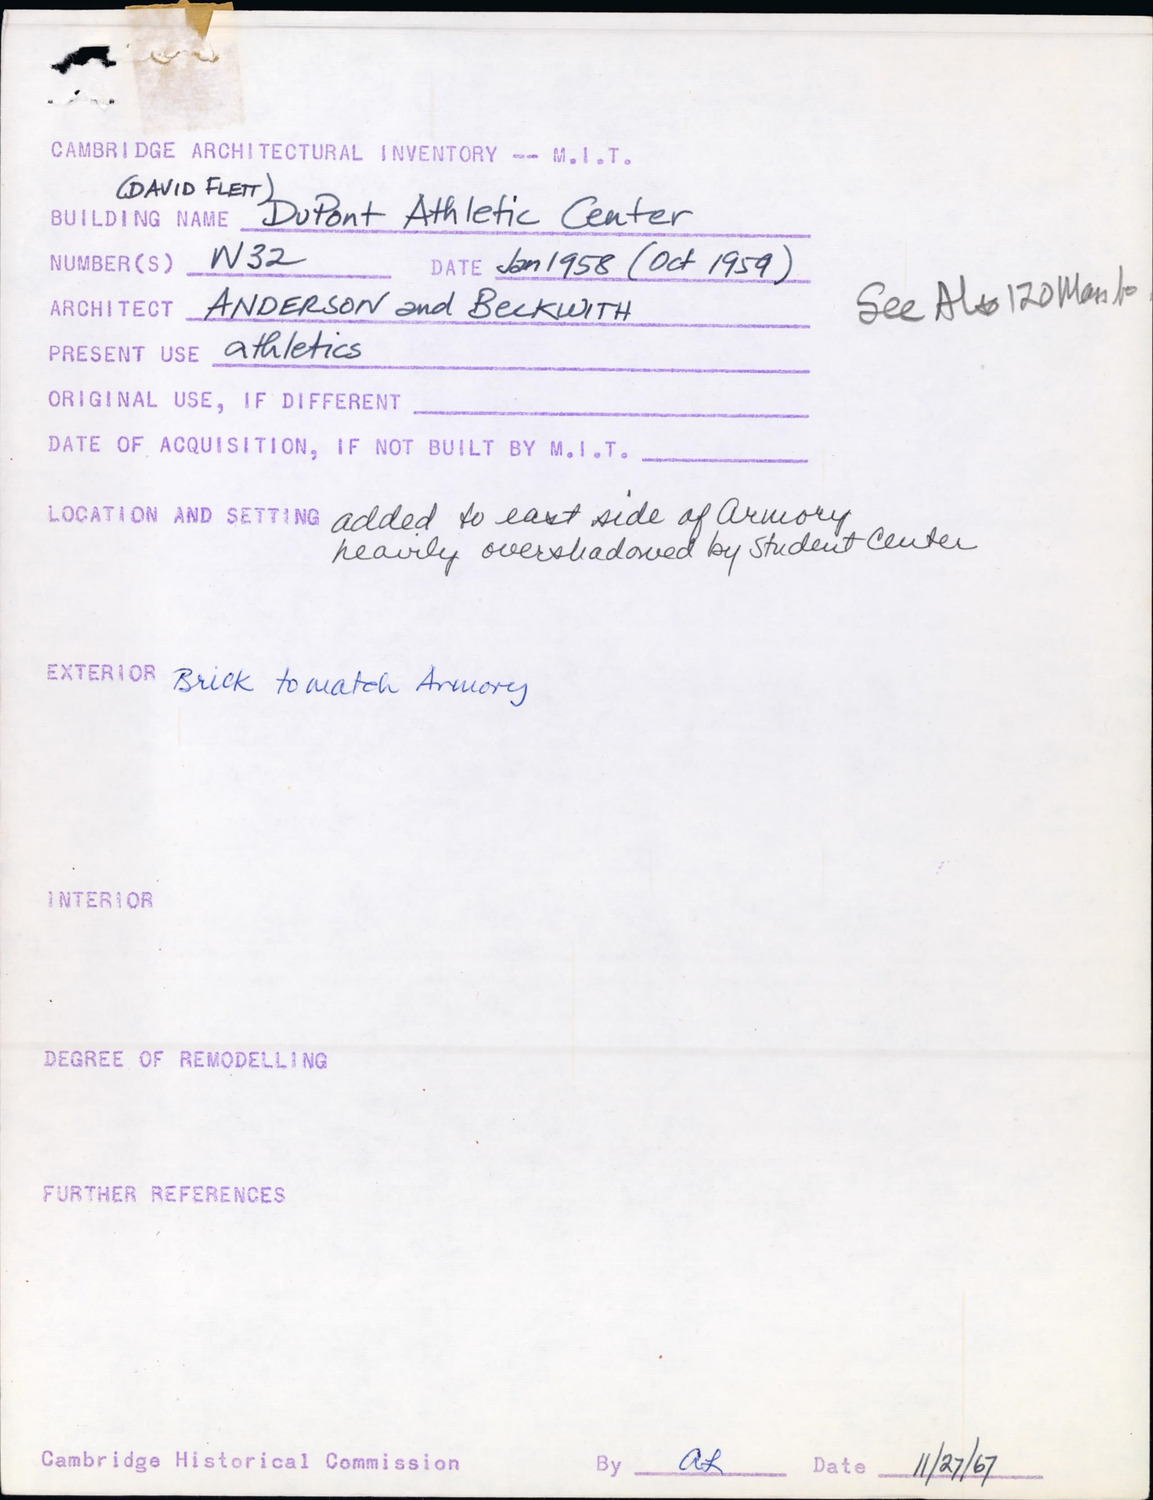 CAMBRIDGE ARCHITECTURAL INVENTORY -- M.I.T.
(DAVID FLETT)
BUILDING NAME DuPont Athletic Center
NUMBER(S) W32 DATE Jan 1958 (Oct 1959)
ARCHITECT ANDERSON and BECKWITH
See Also 120 Mass
PRESENT USE athletics
ORIGINAL USE, IF DIFFERENT
DATE OF ACQUISITION, IF NOT BUILT BY M.I.T.
LOCATION AND SETTING added to east side of Armory
heavily overshadowed by Student Center
EXTERIOR Brick to match Armory
INTERIOR
DEGREE OF REMODELLING
FURTHER REFERENCES
Cambridge Historical Commission By Date 11/27/67